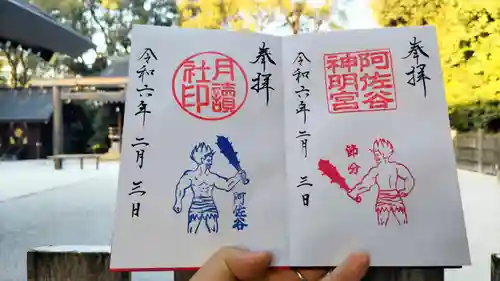 奉拝
阿佐谷
神明宮
令和六年二月三日
節分
奉拝
月讀
社印
令和六年二月三日
阿佐谷